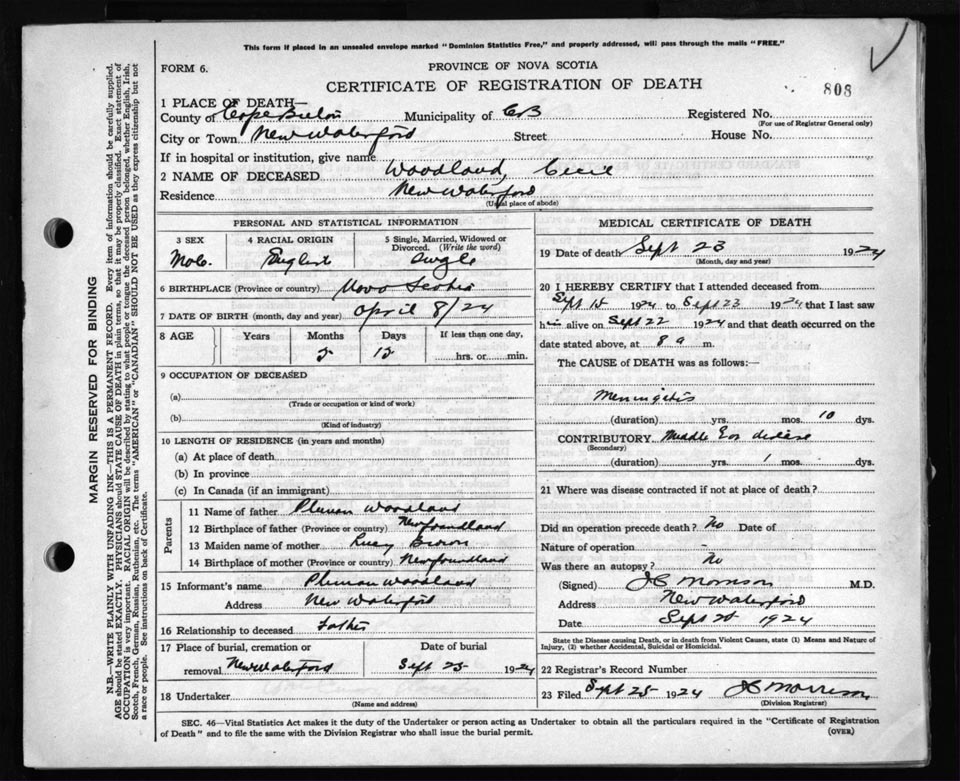 This form if placed in an unsealed envelope marked "Dominion Statistics Free," and properly addressed, will pass through the mails "FREE."
FORM 6.
PROVINCE OF NOVA SCOTIA
CERTIFICATE OF REGISTRATION OF DEATH
808
1 PLACE OF DEATH—
County of Cape Breton Municipality of CB Registered No.
(For use of Registrar General only)
City or Town New Waterford Street House No.
If in hospital or institution, give name
2 NAME OF DECEASED Woodland, Cecil
Residence New Waterford
(Usual place of abode)
PERSONAL AND STATISTICAL INFORMATION
3 SEX 4 RACIAL ORIGIN 5 Single, Married, Widowed or Divorced. (Write the word)
English Single
6 BIRTHPLACE (Province or country) Nova Scotia
7 DATE OF BIRTH (month, day and year) April 8/24
8 AGE Years Months Days If less than one day,
5 15 hrs. or min.
9 OCCUPATION OF DECEASED
(a)
(Trade or occupation or kind of work)
(b)
(Kind of industry)
10 LENGTH OF RESIDENCE (in years and months)
(a) At place of death
(b) In province
(c) In Canada (if an immigrant)
Parents
11 Name of father Woodland
12 Birthplace of father (Province or country) Newfoundland
13 Maiden name of mother Lucy Brown
14 Birthplace of mother (Province or country) Newfoundland
15 Informant's name Woodland
Address New Waterford
16 Relationship to deceased Father
17 Place of burial, cremation or Date of burial
removal New Waterford Sept 25 1924
18 Undertaker
(Name and address)
MEDICAL CERTIFICATE OF DEATH
19 Date of death Sept 23 1924
(Month, day and year)
20 I HEREBY CERTIFY that I attended deceased from
Sept 15 1924 to Sept 23 1924 that I last saw
him alive on Sept 22 1924 and that death occurred on
date stated above, at 8 a m.
The CAUSE of DEATH was as follows:—
Meningitis
(duration) yrs. mos. 10 dys.
CONTRIBUTORY Middle Ear disease
(Secondary)
(duration) yrs. 1 mos. dys.
21 Where was disease contracted if not at place of death?
Did an operation precede death? No Date of
Nature of operation
Was there an autopsy? No
(Signed) J C Morrison M.D.
Address New Waterford
Date Sept 25 1924
State the Disease causing Death, or in death from Violent Causes, state (1) Means and Nature of
Injury, (2) whether Accidental, Suicidal or Homicidal.
22 Registrar's Record Number
23 Filed Sept 25 1924 J C Morrison
(Division Registrar)
SEC. 46—Vital Statistics Act makes it the duty of the Undertaker or person acting as Undertaker to obtain all the particulars required in the "Certificate of Registration
of Death" and to file the same with the Division Registrar who shall issue the burial permit.
(OVER)
MARGIN RESERVED FOR BINDING
N.B.—WRITE PLAINLY WITH UNFADING INK—THIS IS A PERMANENT RECORD. Every item of information should be carefully supplied.
AGE should be stated EXACTLY. PHYSICIANS should STATE CAUSE OF DEATH in plain terms, so that it may be properly classified. Exact statement of
OCCUPATION is very important. RACIAL ORIGIN will be described by stating to what people or tongue the deceased person belonged, whether English, Irish,
Scotch, French, German, Russian, Ruthenian, etc. The terms "AMERICAN" or "CANADIAN" SHOULD NOT BE USED as they express citizenship but not
a race or people. See instructions on back of Certificate.